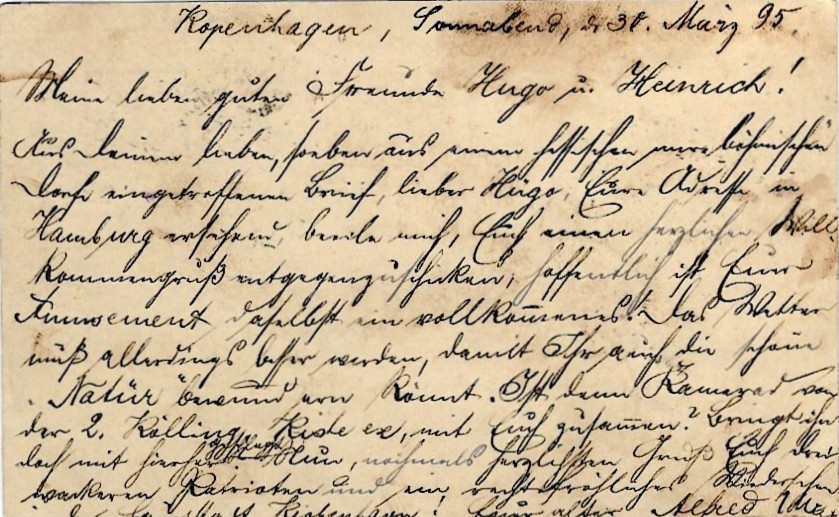 Kopenhagen, Sonnabend, d. 30. März 95.
Meine lieben guten Freunde Hugo u. Heinrich!
Aus Deinem lieben, soeben aus einem hessischen böhmischen
Dorfe eingetroffenen Brief, lieber Hugo, Eure Adresse in
Hamburg ersehend, beeile mich, Euch einen herzlichen Will
kommengruß entgegenzuschicken, hoffentlich ist Euer
Amusement daselbst ein vollkommenes! Das Wetter
muß allerdings besser werden, damit Ihr auch die schöne
Natur bewundern könnt. Ist denn Kamerad von
der 2. Kölling, mit Euch zusammen? Bringt ihn
doch mit hierher Nun, nochmals herzlichsten Gruß Euch drei
wackeren Patrioten und ein recht fröhliches Wiedersehen
Euer alter Alfred